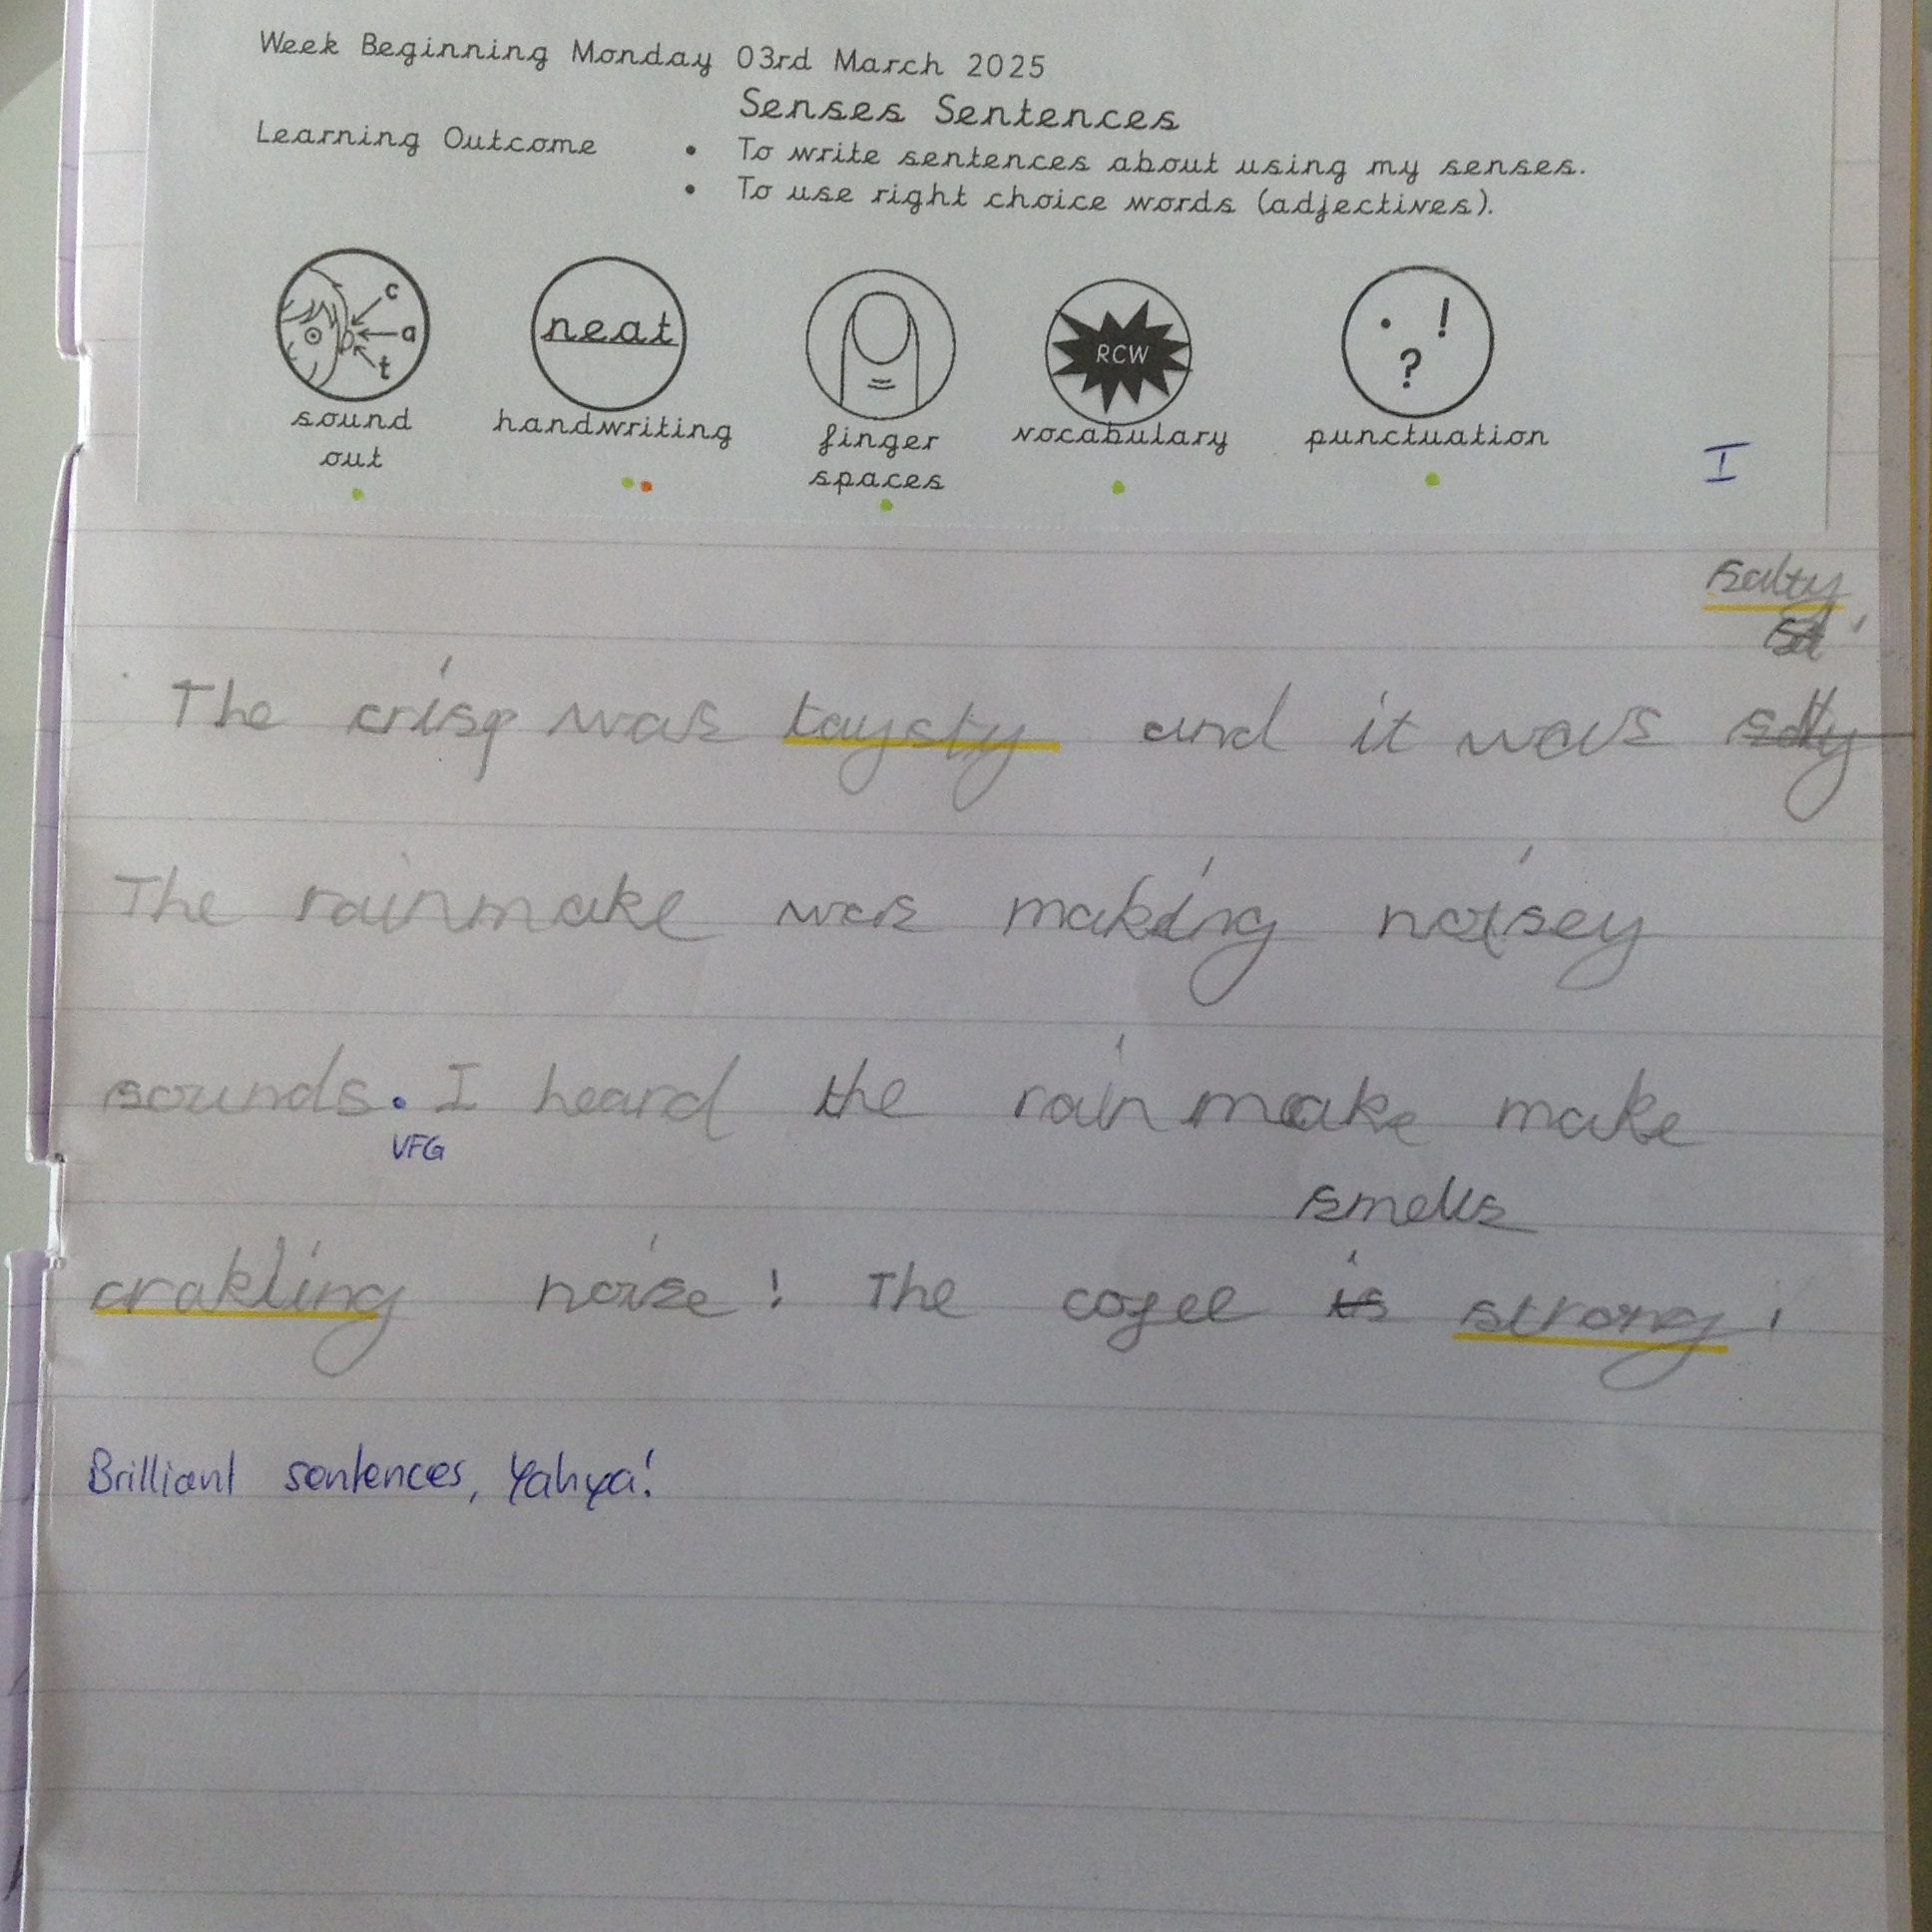 Week Beginning Monday 03rd March 2025
Senses Sentences
Learning Outcome • To write sentences about using my senses.
• To use right choice words (adjectives).
c
a
t
neat
RCW
. ! ?
sound out
handwriting
finger spaces
vocabulary
punctuation
I
salty
The crisp was taysty and it was salty
The rainmake was making noisey
sounds. I heard the rainmake make
VFG
smells
crakling noise! The cofee is strong!
Brilliant sentences, Yahya!